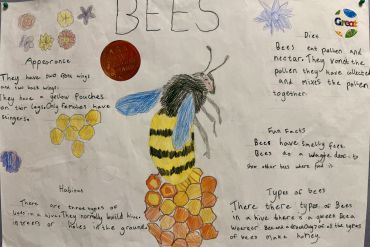 BEES
Great
Appearance
They have two fore wings
and two back wings.
They have a yellow pouches
on thir legs. Only females have
stingers.
Diet
Bees eat pollen and
nectar. They vomit the
pollen they have collected
and mixes the pollen
together.
Fun Facts
Bees have smelly feet.
Bees do a waggle dance to
show other bees where food is.
Habitats
There are three types of
bees in a hive. They normally build hives
in trees or holes in the ground.
Types of bees
There there types of Bees
in a hive there's a queen Bee a
worker Bee and a drone. Only of all the types
of bees make honey.